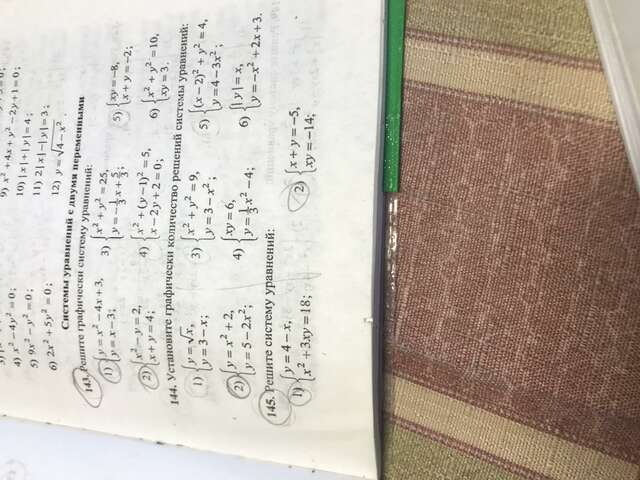 4) x² − 4y² = 0;
5) 9x² − y² = 0;
6) 2x² + 5y² = 0;
9) x² + 4x + y² − 2y + 1 = 0;
10) |x| + |y| = 4;
11) 2|x| − |y| = 3;
12) y = √4 − x².
Системы уравнений с двумя переменными
143. Решите графически систему уравнений:
1) { y = x² − 4x + 3,
y = x − 3;
2) { x² − y = 2,
x + y = 4;
3) { x² + y² = 25,
y = −1/3 x + 5/3;
4) { x² + (y − 1)² = 5,
x − 2y + 2 = 0;
5) { xy = −8,
x + y = −2;
6) { x² + y² = 10,
xy = 3.
144. Установите графически количество решений системы уравнений:
1) { y = √x,
y = 3 − x;
2) { y = x² + 2,
y = 5 − 2x²;
3) { x² + y² = 9,
y = 3 − x²;
4) { xy = 6,
y = 1/3 x² − 4;
5) { (x − 2)² + y² = 4,
y = 4 − 3x²;
6) { |y| = x,
y = −x² + 2x + 3.
145. Решите систему уравнений:
1) { y = 4 − x,
x² + 3xy = 18;
2) { x + y = −5,
xy = −14;